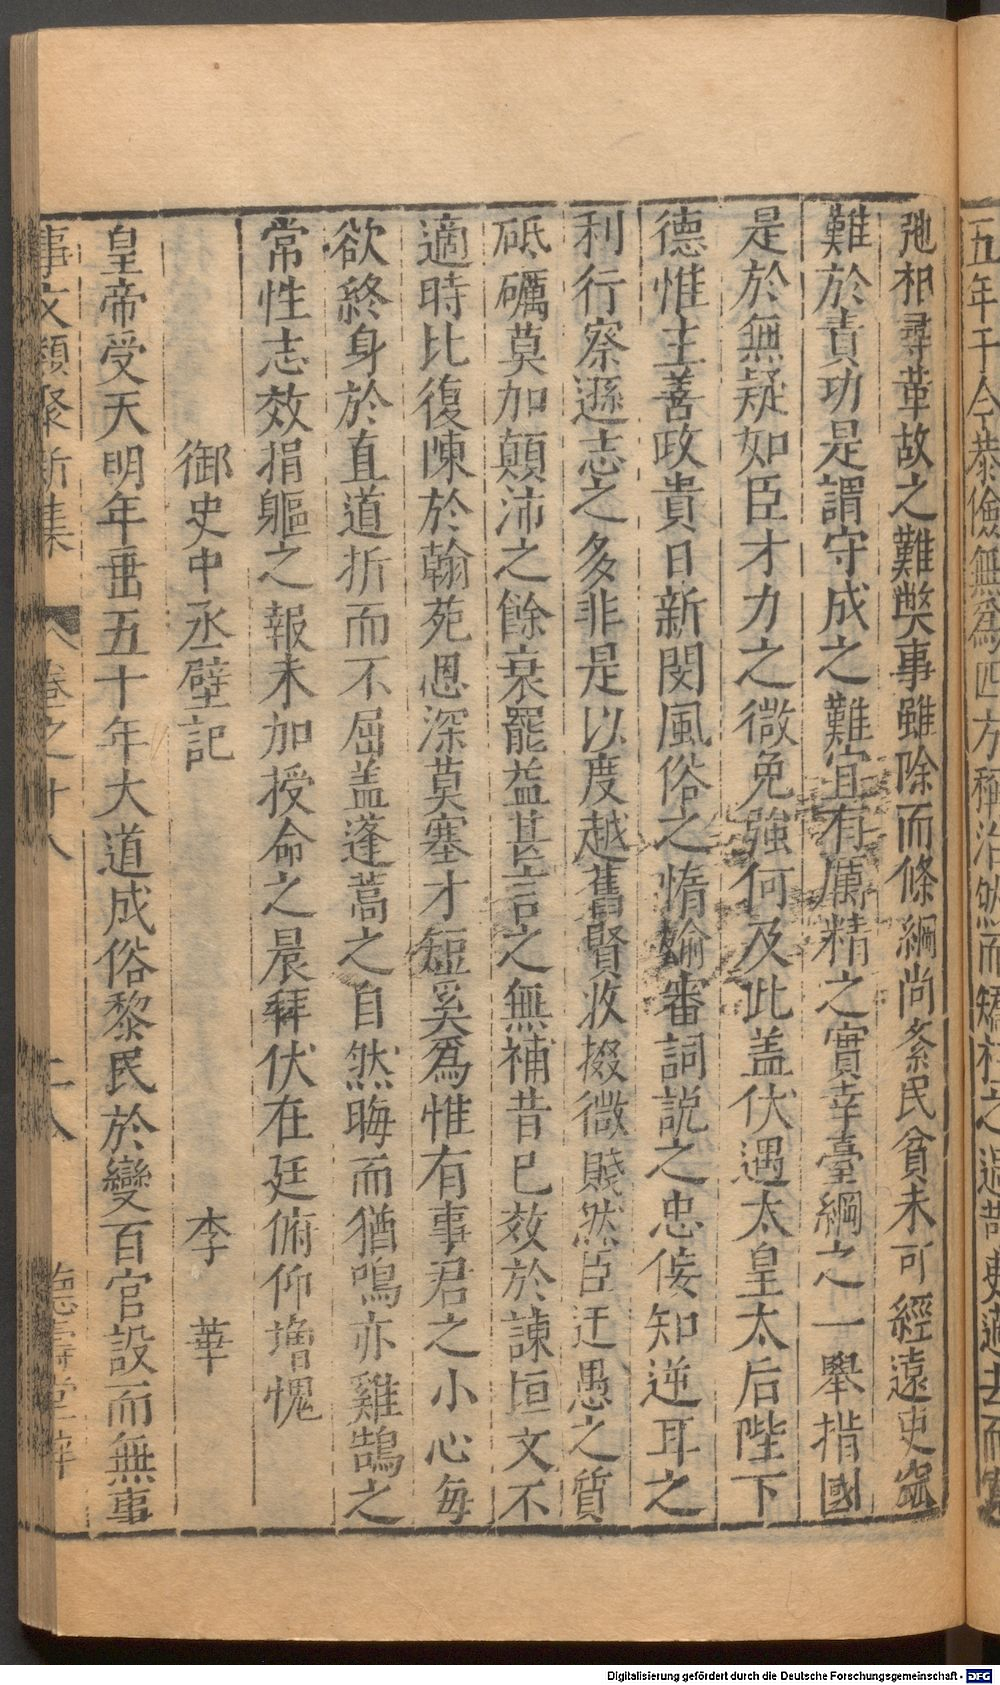 弛相尋革故之難獘事雖除而條綱尚紊民貧未可經遠吏寙
難於責功是謂守成之難宜有厲精之實幸臺綱之一舉揩國
是於無疑如臣才力之微免強何及此盖伏遇太皇太后陛下
德惟主善政貴日新閔風俗之惰媮審詞説之忠佞知逆耳之
利行察遜志之多非是以度越舊賢收掇微賤然臣迂愚之質
砥礪莫加顛沛之餘衰罷益甚言之無補昔已效於諫垣文不
適時比復陳於翰苑恩深莫塞才短奚爲惟有事君之小心每
欲終身於直道折而不屈盖蓬蒿之自然晦而猶鳴亦雞鵠之
常性志效捐軀之報未加授命之晨拜伏在廷俯仰增愧
御史中丞壁記 李 華
皇帝受天明年垂五十年大道成俗黎民於變百官設而無事
事文類聚新集 卷之廿八 十八 德壽堂梓
五年于今恭儉無爲四方稱治然而矯枉之過韵吏適去而
Digitalisierung gefördert durch die Deutsche Forschungsgemeinschaft - DFG